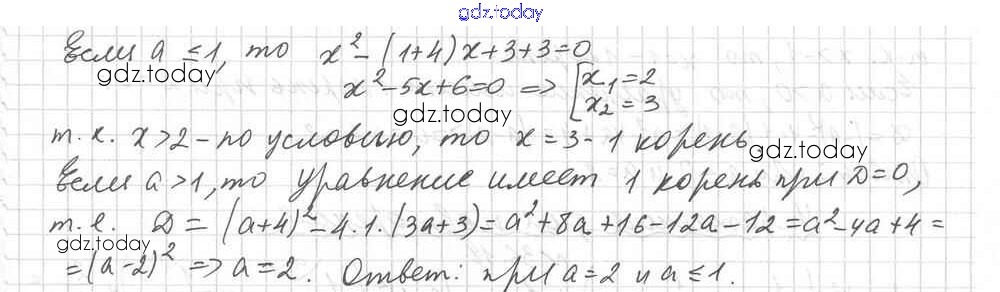 gdz.today
Если a ≤ 1, то x² - (1+4)x+3+3=0
gdz.today
x² - 5x+6=0 => [x₁ = 2
x₂ = 3
gdz.today
т.к. x>2 - по условию, то x = 3 - 1 корень
gdz.today
Если a>1, то уравнение имеет 1 корень при D=0,
т.е. D = (a+4)² - 4·1·(3a+3) = a²+8a+16-12a-12 = a²-4a+4 =
gdz.today
= (a-2)² => a=2. Ответ: при a=2 и a≤1.